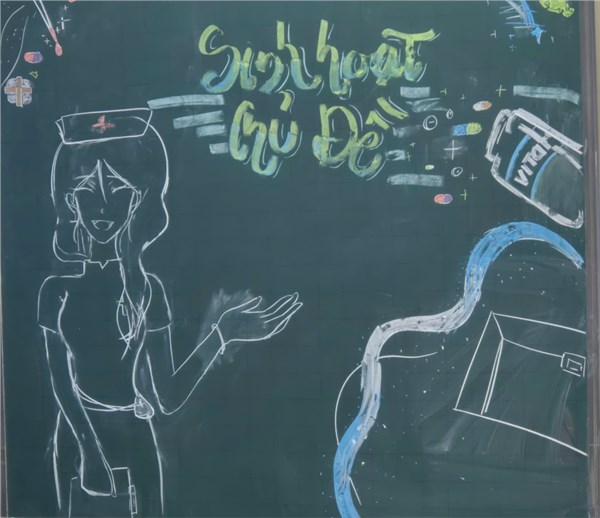 Sinh hoạt
Chủ Đề
VITA